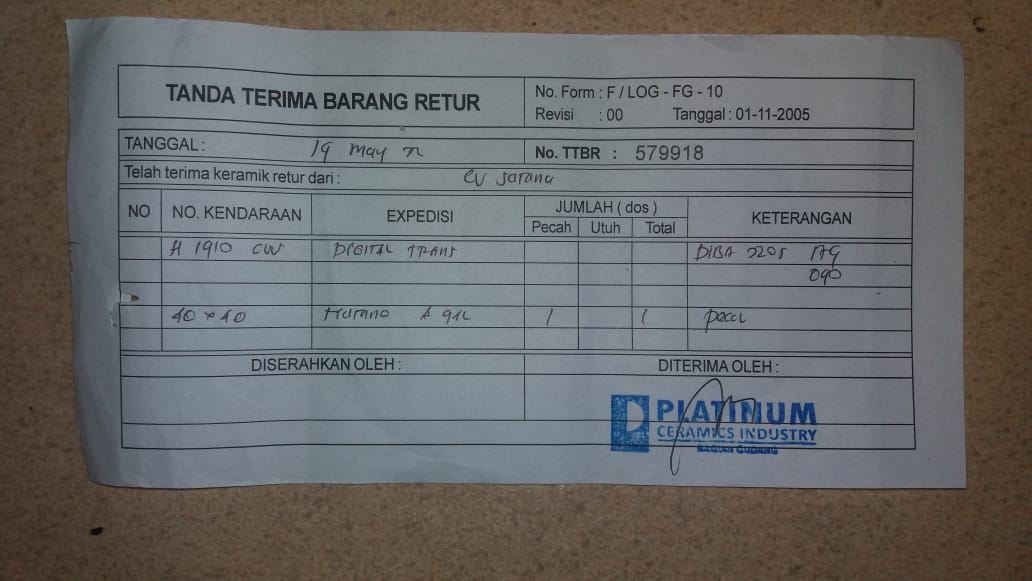 TANDA TERIMA BARANG RETUR
No. Form : F / LOG - FG - 10
Revisi : 00 Tanggal : 01-11-2005
TANGGAL : 19 may
No. TTBR : 579918
Telah terima keramik retur dari : CV Sarana
NO NO. KENDARAAN EXPEDISI JUMLAH ( dos ) KETERANGAN
Pecah Utuh Total
H 1910 CW DIGITAL TRANS DIBA 2205 179
090
40 x 40 Murano 1 1
DISERAHKAN OLEH : DITERIMA OLEH :
PLATINUM
CERAMICS INDUSTRY